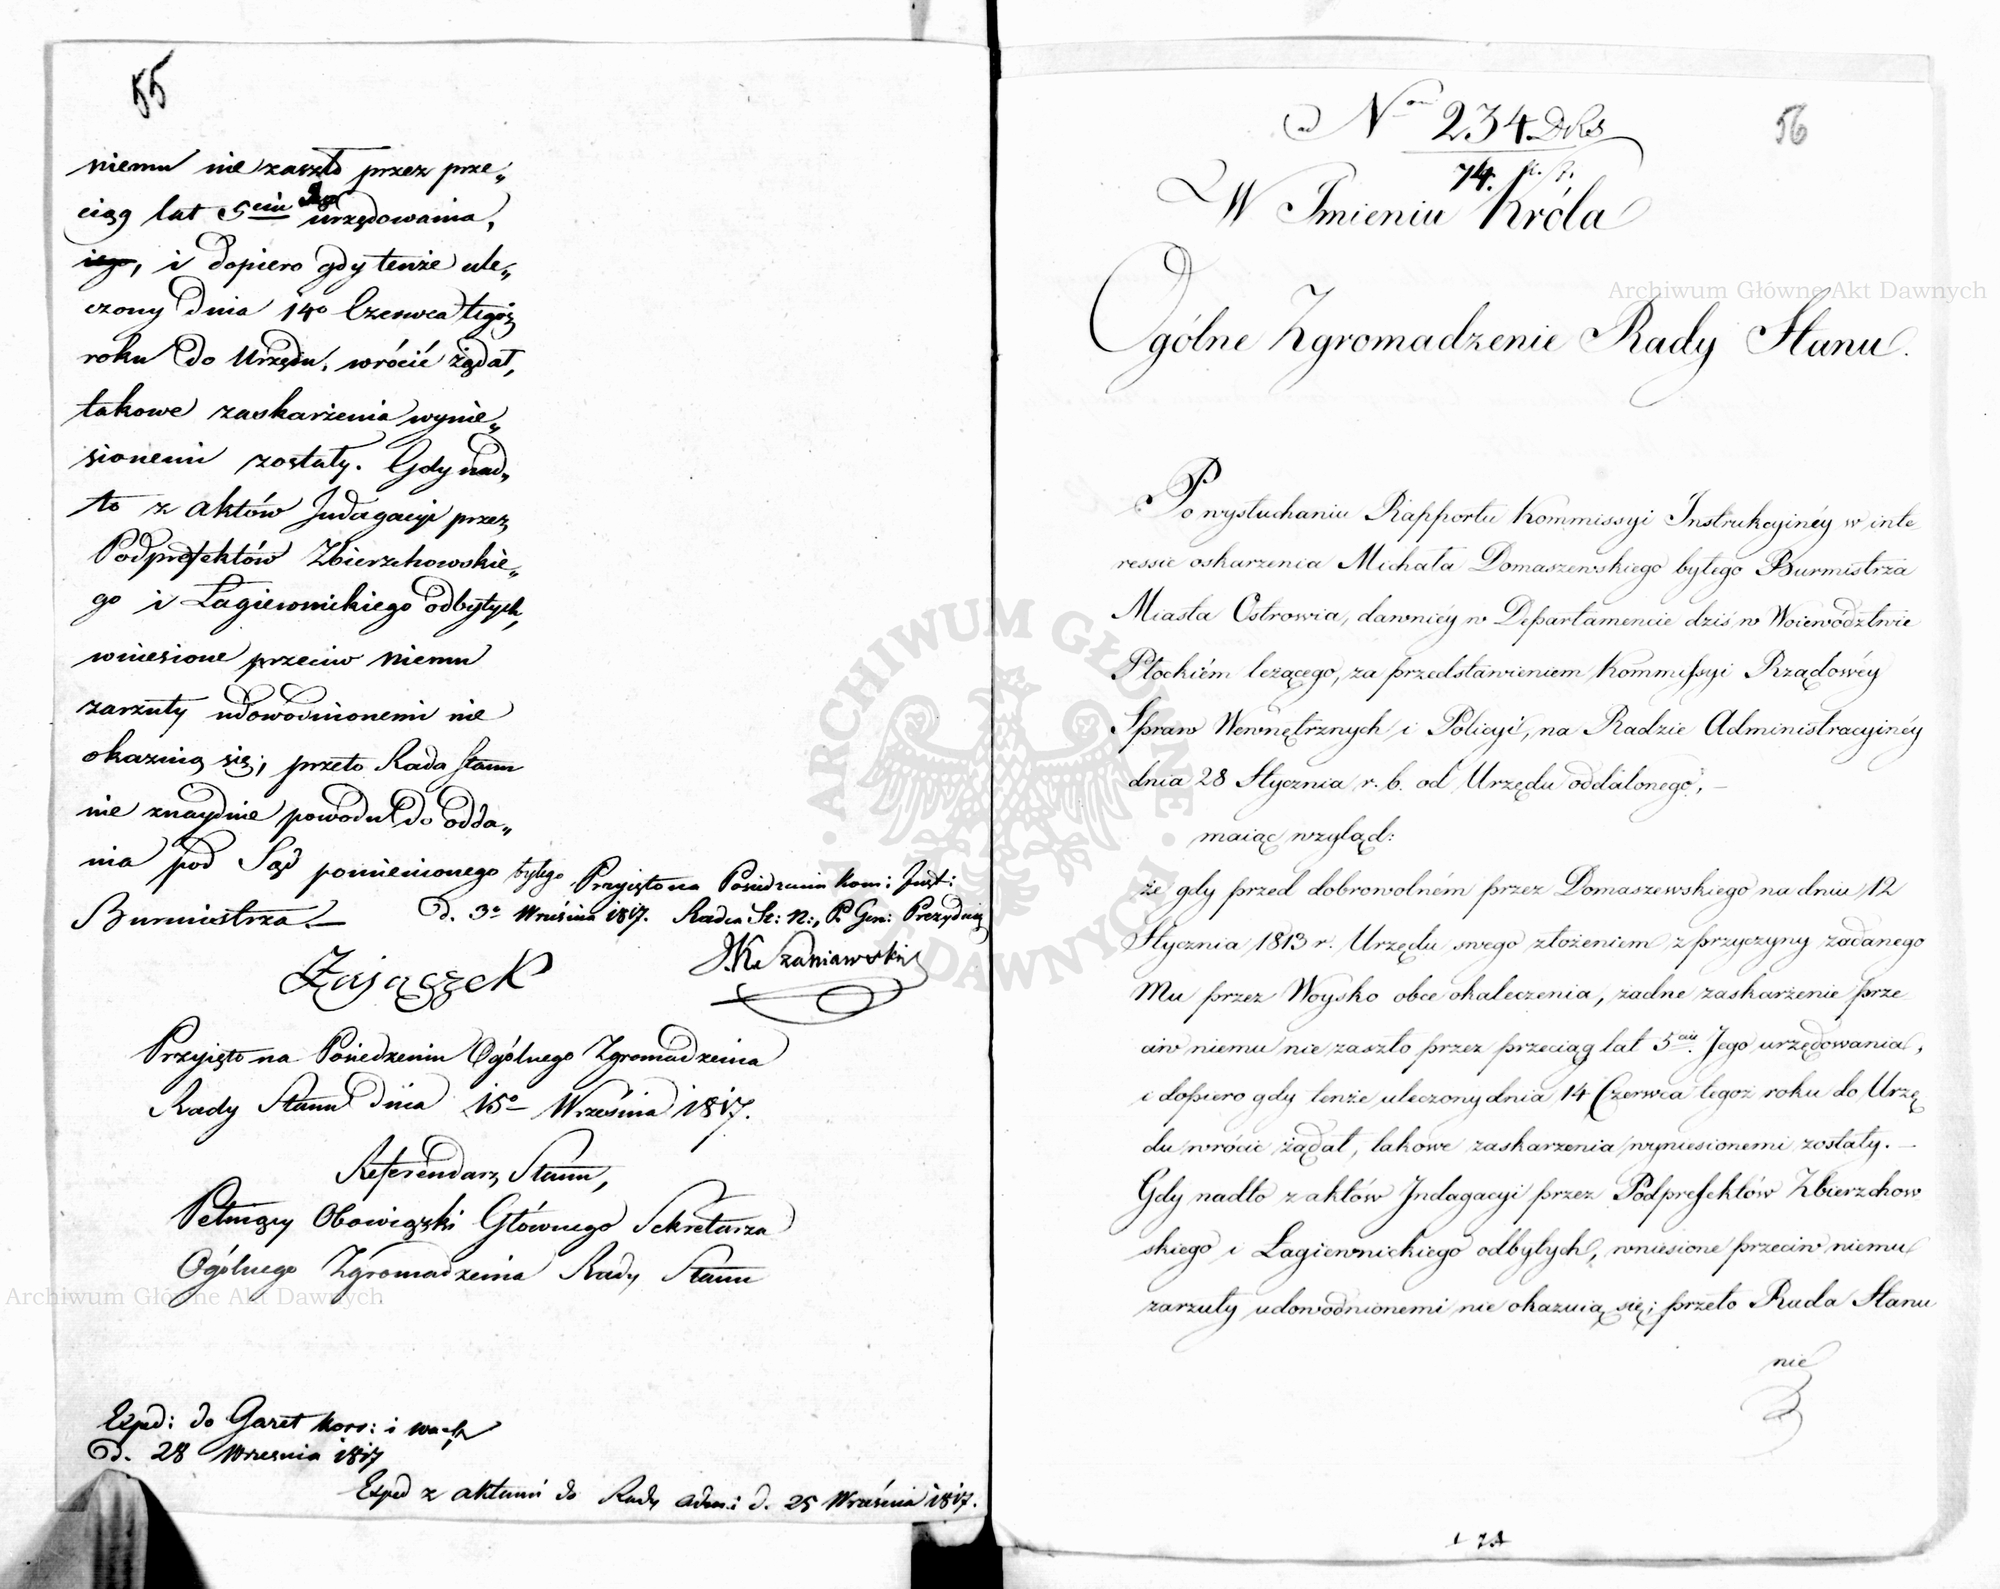 55
niemu nie zaszło przez prze„
ciąg lat 5ciu Jego urzędowania,
iego, i dopiero gdy tenże ule„
czony dnia 14º Czerwca tegoż
roku do Urzędu, wrócić żądał,
takowe zaskarżenia wynie„
sionemi zostały. Gdy nad„
to z aktów Indagacyi przez
Podprefektów Zbierzchowskie„
go i Łagiewnickiego odbytych,
wniesione przeciw niemu
zarzuty udowodnionemi nie
okazuią się; przeto Rada Stanu
nie znayduie powodu do odda„
nia pod Sąd pomienionego byłego
Burmistrza.—
Przyięto na Posiedzeniu Kom: Inst:
d. 3º Września 1817. Radca St: N:, P. Gen: Prezyduią
J.K. Szaniawski
Zajączek
Przyięto na Posiedzeniu Ogólnego Zgromadzenia
Rady Stanu dnia 15º Września 1817.
Referendarz Stanu,
Pełniący Obowiązki Głównego Sekretarza
Ogólnego Zgromadzenia Rady Stanu
Exped: do Gazet Korr: i
d. 28 Września 1817
Exped z aktami do Rady Adm: d. 25 Września 1817.
56
ad Nrm 234. DRS
74.
W Imieniu Króla
Ogólne Zgromadzenie Rady Stanu.
Po wysłuchaniu Rapportu Kommissyi Instrukcyinéy w inte
ressie oskarzenia Michała Domaszewskiego byłego Burmistrza
Miasta Ostrowia, dawniéy w Departamencie dziś w Woiewództwie
Płockiém leżącego, za przedstawieniem Kommissyi Rządowéy
Spraw Wewnętrznych i Policyi, na Radzie Administracyinéy
dnia 28 Stycznia r. b. od Urzędu oddalonego, —
maiąc wzgląd:
że gdy przed dobrowolném przez Domaszewskiego na dniu 12
Stycznia 1813 r. Urzędu swego złożeniem z przyczyny zadanego
Mu przez Woysko obce okaleczenia, żadne zaskarżenie prze
ciw niemu nie zaszło przez przeciąg lat 5ciu. Jego urzędowania,
i dopiero gdy tenże uleczony dnia 14 Czerwca tegoż roku do Urzę
du wrócić żądał, takowe zaskarzenia wyniesionemi zostały. —
Gdy nadto z aktów Indagacyi przez Podprefektów Zbierzchow
skiego i Łagiewnickiego odbytych, wniesione przeciw niemu
zarzuty udowodnionemi nie okazuią się; przeto Rada Stanu
nie
Archiwum Główne Akt Dawnych
Archiwum Główne Akt Dawnych
ARCHIWUM GŁÓWNE AKT DAWNYCH